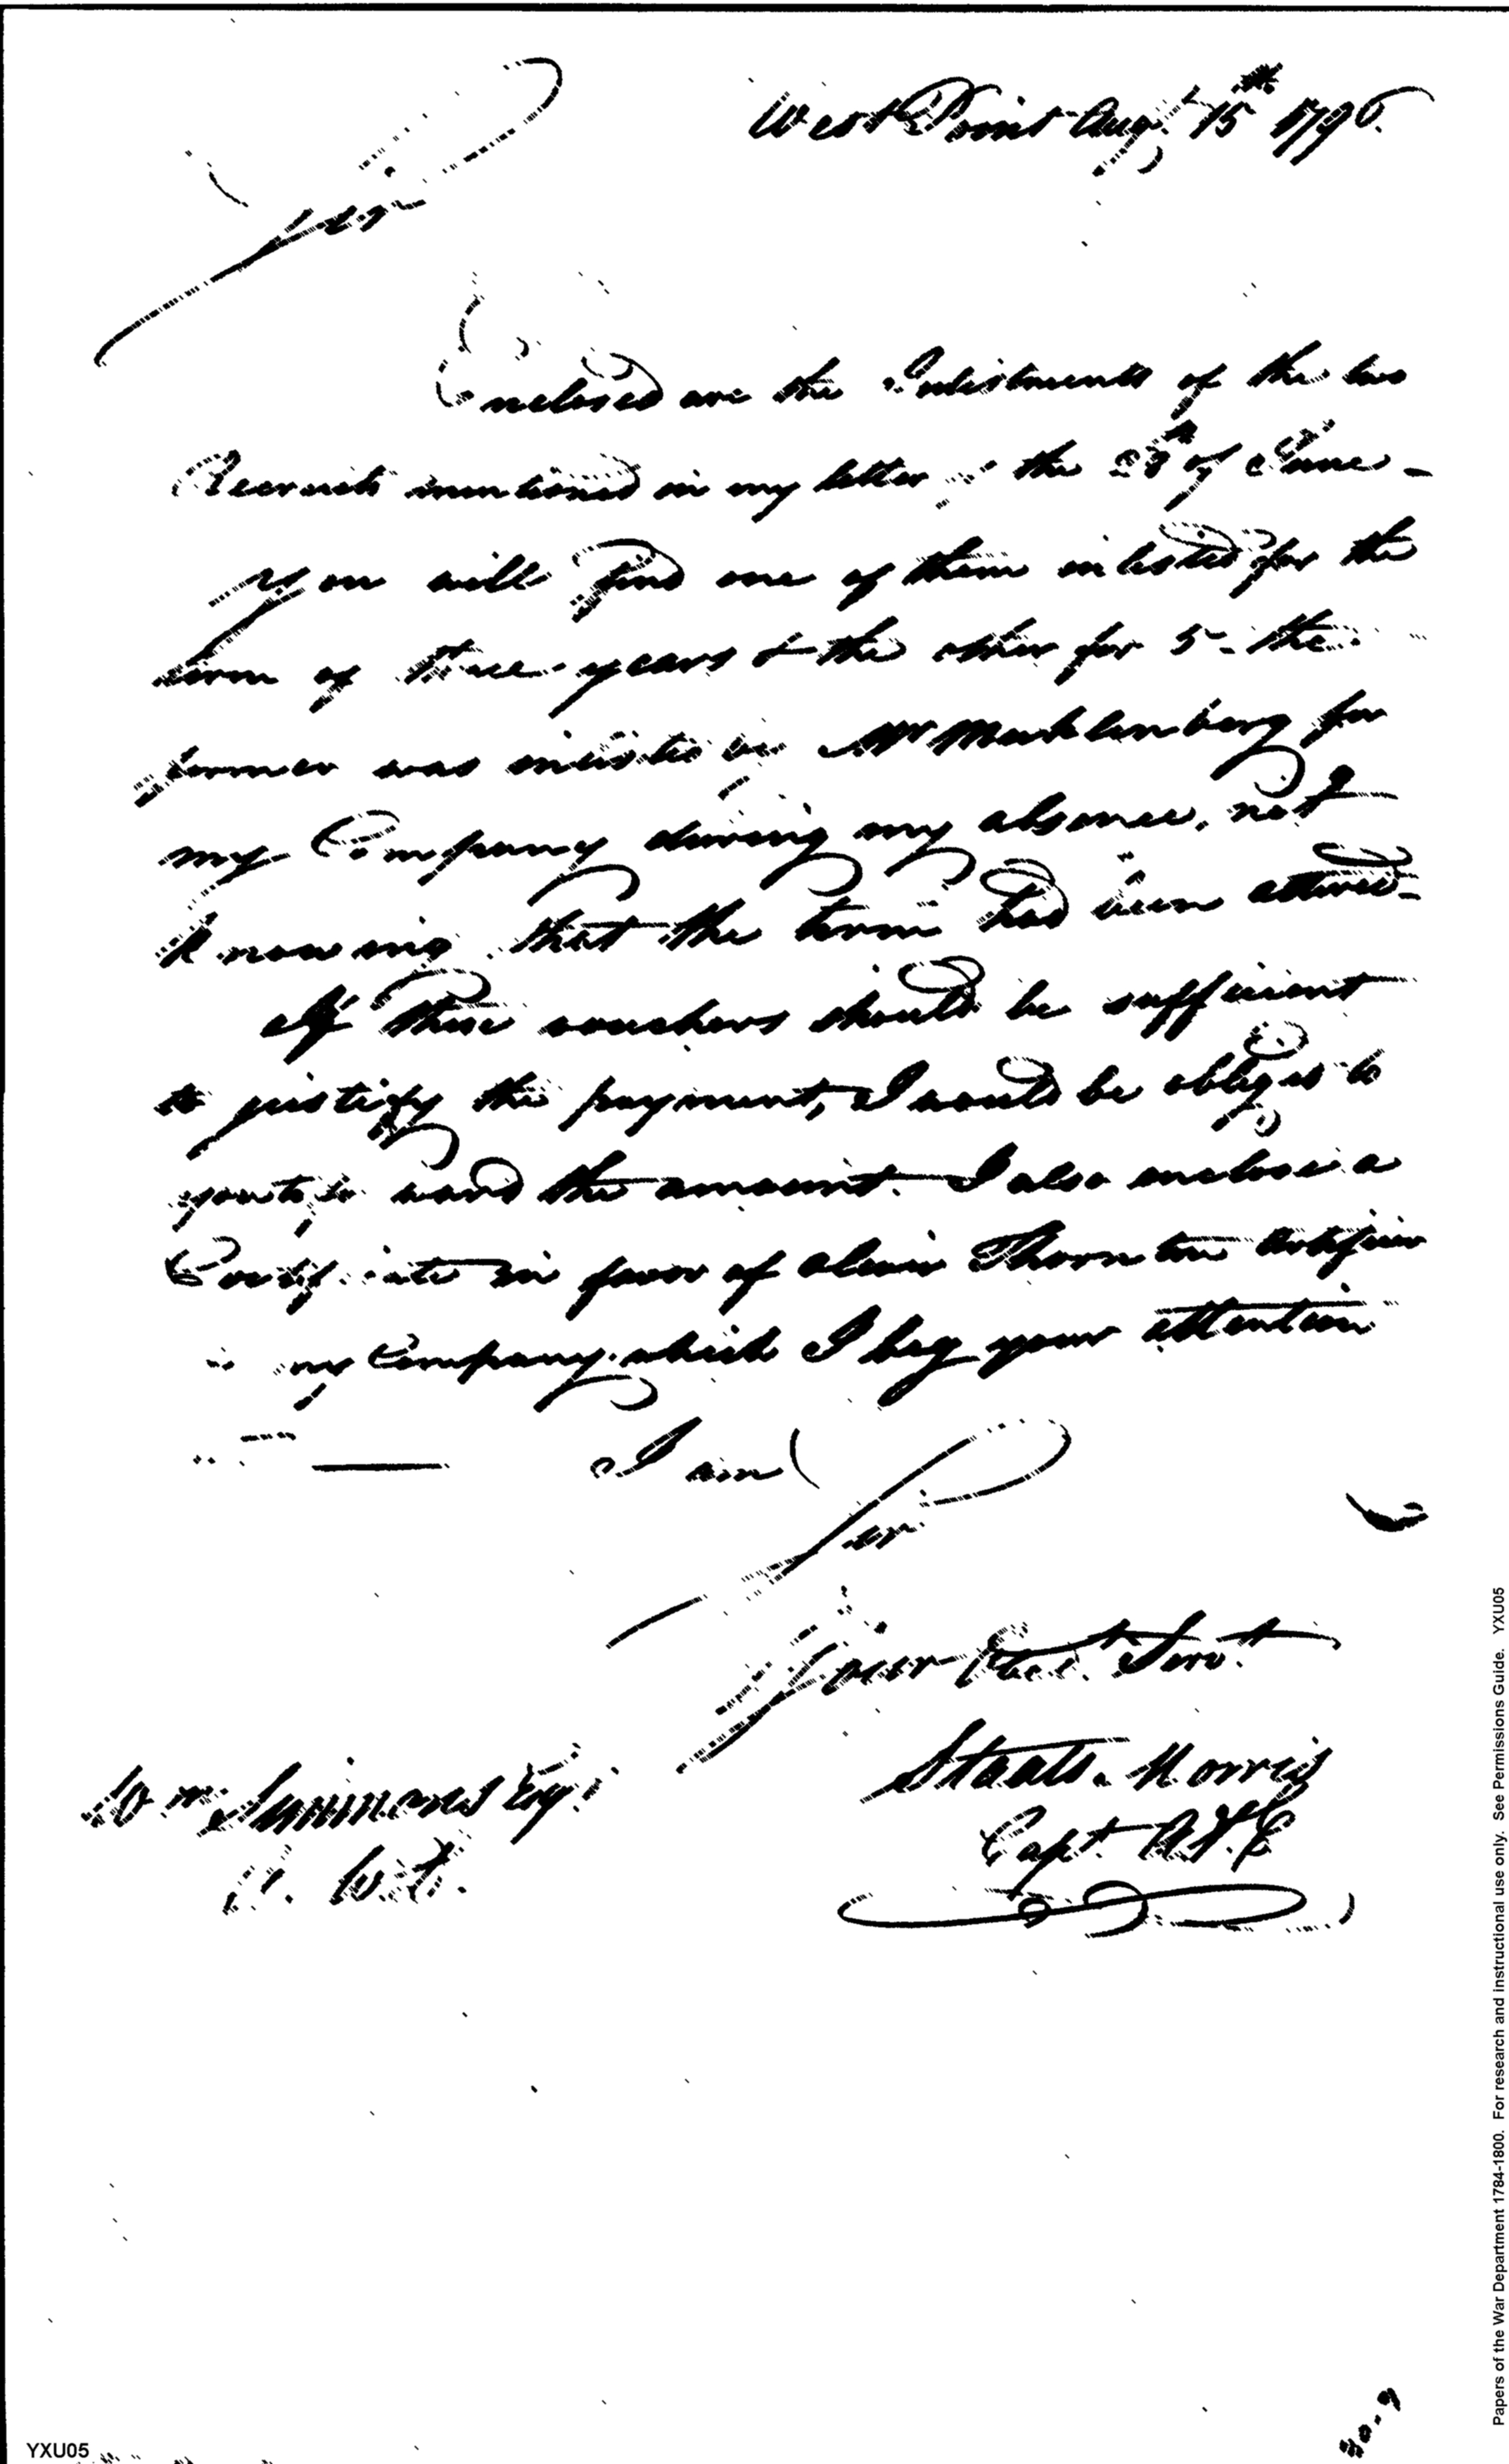 West Point Augt. 15th 1796.
Sir
Enclosed are the Inlistments of the two
Recruits mentioned in my letter of the 28th of June -
You will find one of them inlisted for the
term of three years & the other for 5 - the
former was inlisted by Mr Muhlenberg for
my Company during my absence, not
knowing that the term had been altered -
If these vouchers should be sufficient
to justify the payment, I would be obliged to
you to forward the amount. I also enclose a
Certificate in favor of Thornton Artificer
in my Company. which I beg your attention
to — I am
Sir
Your Obedt. Servt.
Staats. Morris
Capt. A & E
Wm Simmons Esqr.
A. W. D.
YXU05
Papers of the War Department 1784-1800. For research and instructional use only. See Permissions Guide. YXU05